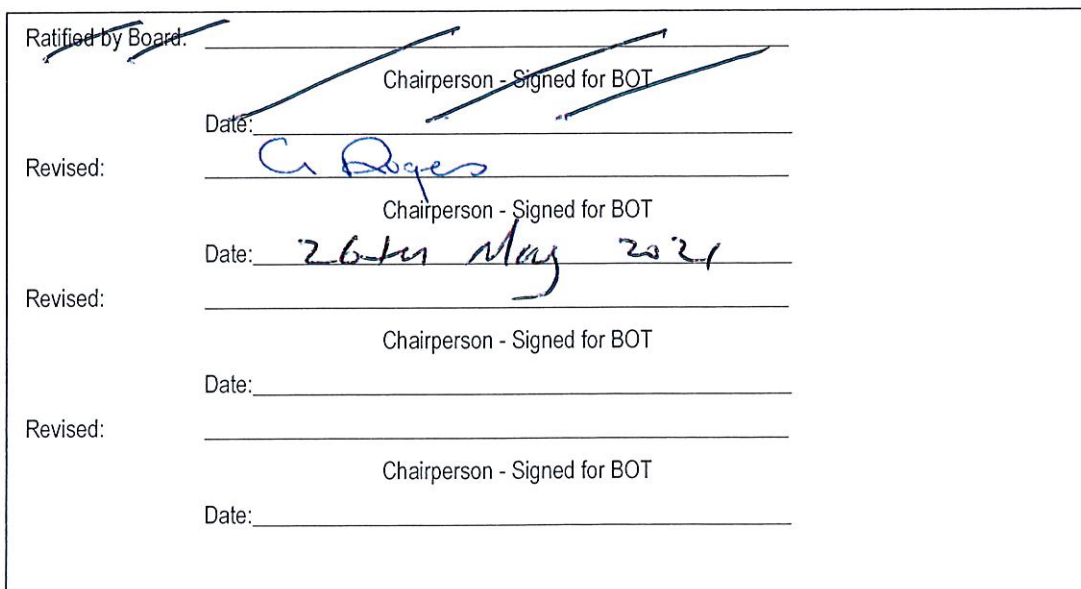 Ratified by Board:
Chairperson - Signed for BOT
Date:
Revised:
Chairperson - Signed for BOT
Date: 26th May 2021
Revised:
Chairperson - Signed for BOT
Date:
Revised:
Chairperson - Signed for BOT
Date: